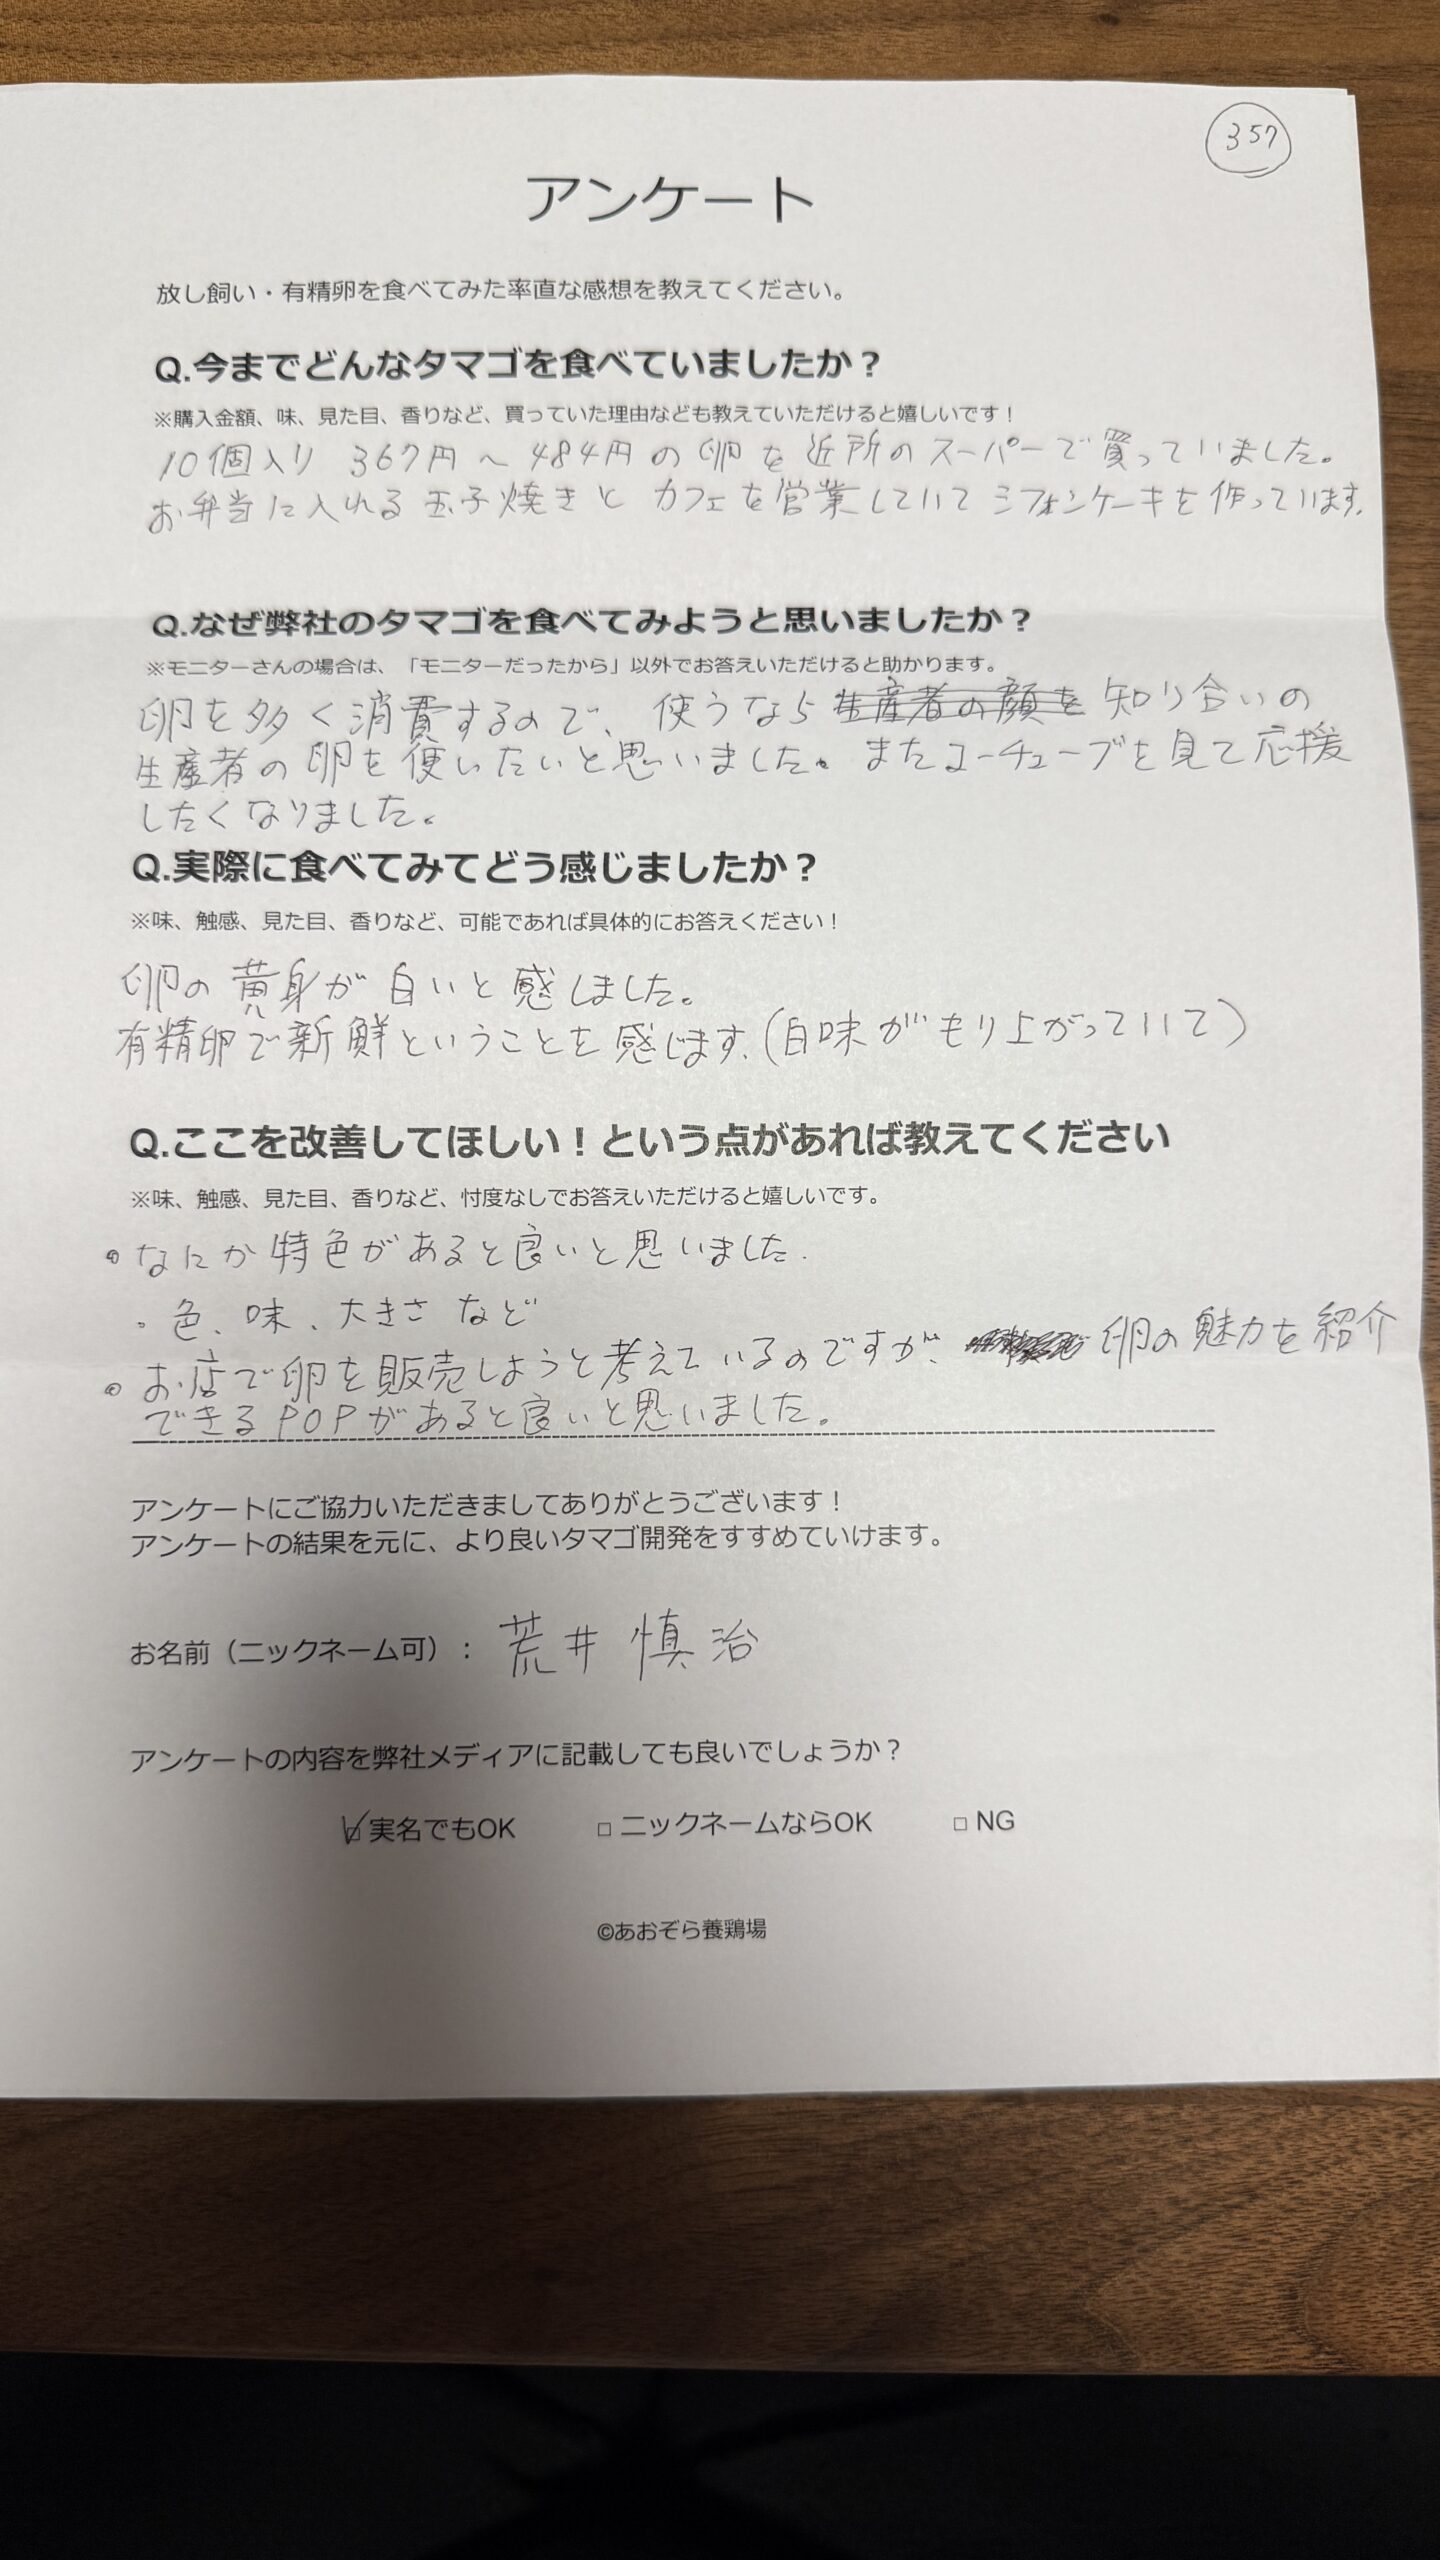 357
アンケート
放し飼い・有精卵を食べてみた率直な感想を教えてください。
Q.今までどんなタマゴを食べていましたか？
※購入金額、味、見た目、香りなど、買っていた理由なども教えていただけると嬉しいです！
10個入り 367円～484円の卵を近所のスーパーで買っていました。
お弁当に入れる玉子焼きと カフェを営業していて シフォンケーキを作っています。
Q.なぜ弊社のタマゴを食べてみようと思いましたか？
※モニターさんの場合は、「モニターだったから」以外でお答えいただけると助かります。
卵を多く消費するので、使うなら 生産者の顔を 知り合いの
生産者の卵を使いたいと思いました。またユーチューブを見て応援
したくなりました。
Q.実際に食べてみてどう感じましたか？
※味、触感、見た目、香りなど、可能であれば具体的にお答えください！
卵の黄身が白いと感しました。
有精卵で新鮮ということを感じます.(白味がもり上がっていて)
Q.ここを改善してほしい！という点があれば教えてください
※味、触感、見た目、香りなど、忖度なしでお答えいただけると嬉しいです。
・なにか特色があると良いと思いました.
・色、味、大きさ など
・お店で卵を販売しようと考えているのですが、 卵の魅力を紹介
できるPOPがあると良いと思いました。
アンケートにご協力いただきましてありがとうございます！
アンケートの結果を元に、より良いタマゴ開発をすすめていけます。
お名前（ニックネーム可）： 荒井 慎治
アンケートの内容を弊社メディアに記載しても良いでしょうか？
☑ 実名でもOK □ ニックネームならOK □ NG
©あおぞら養鶏場